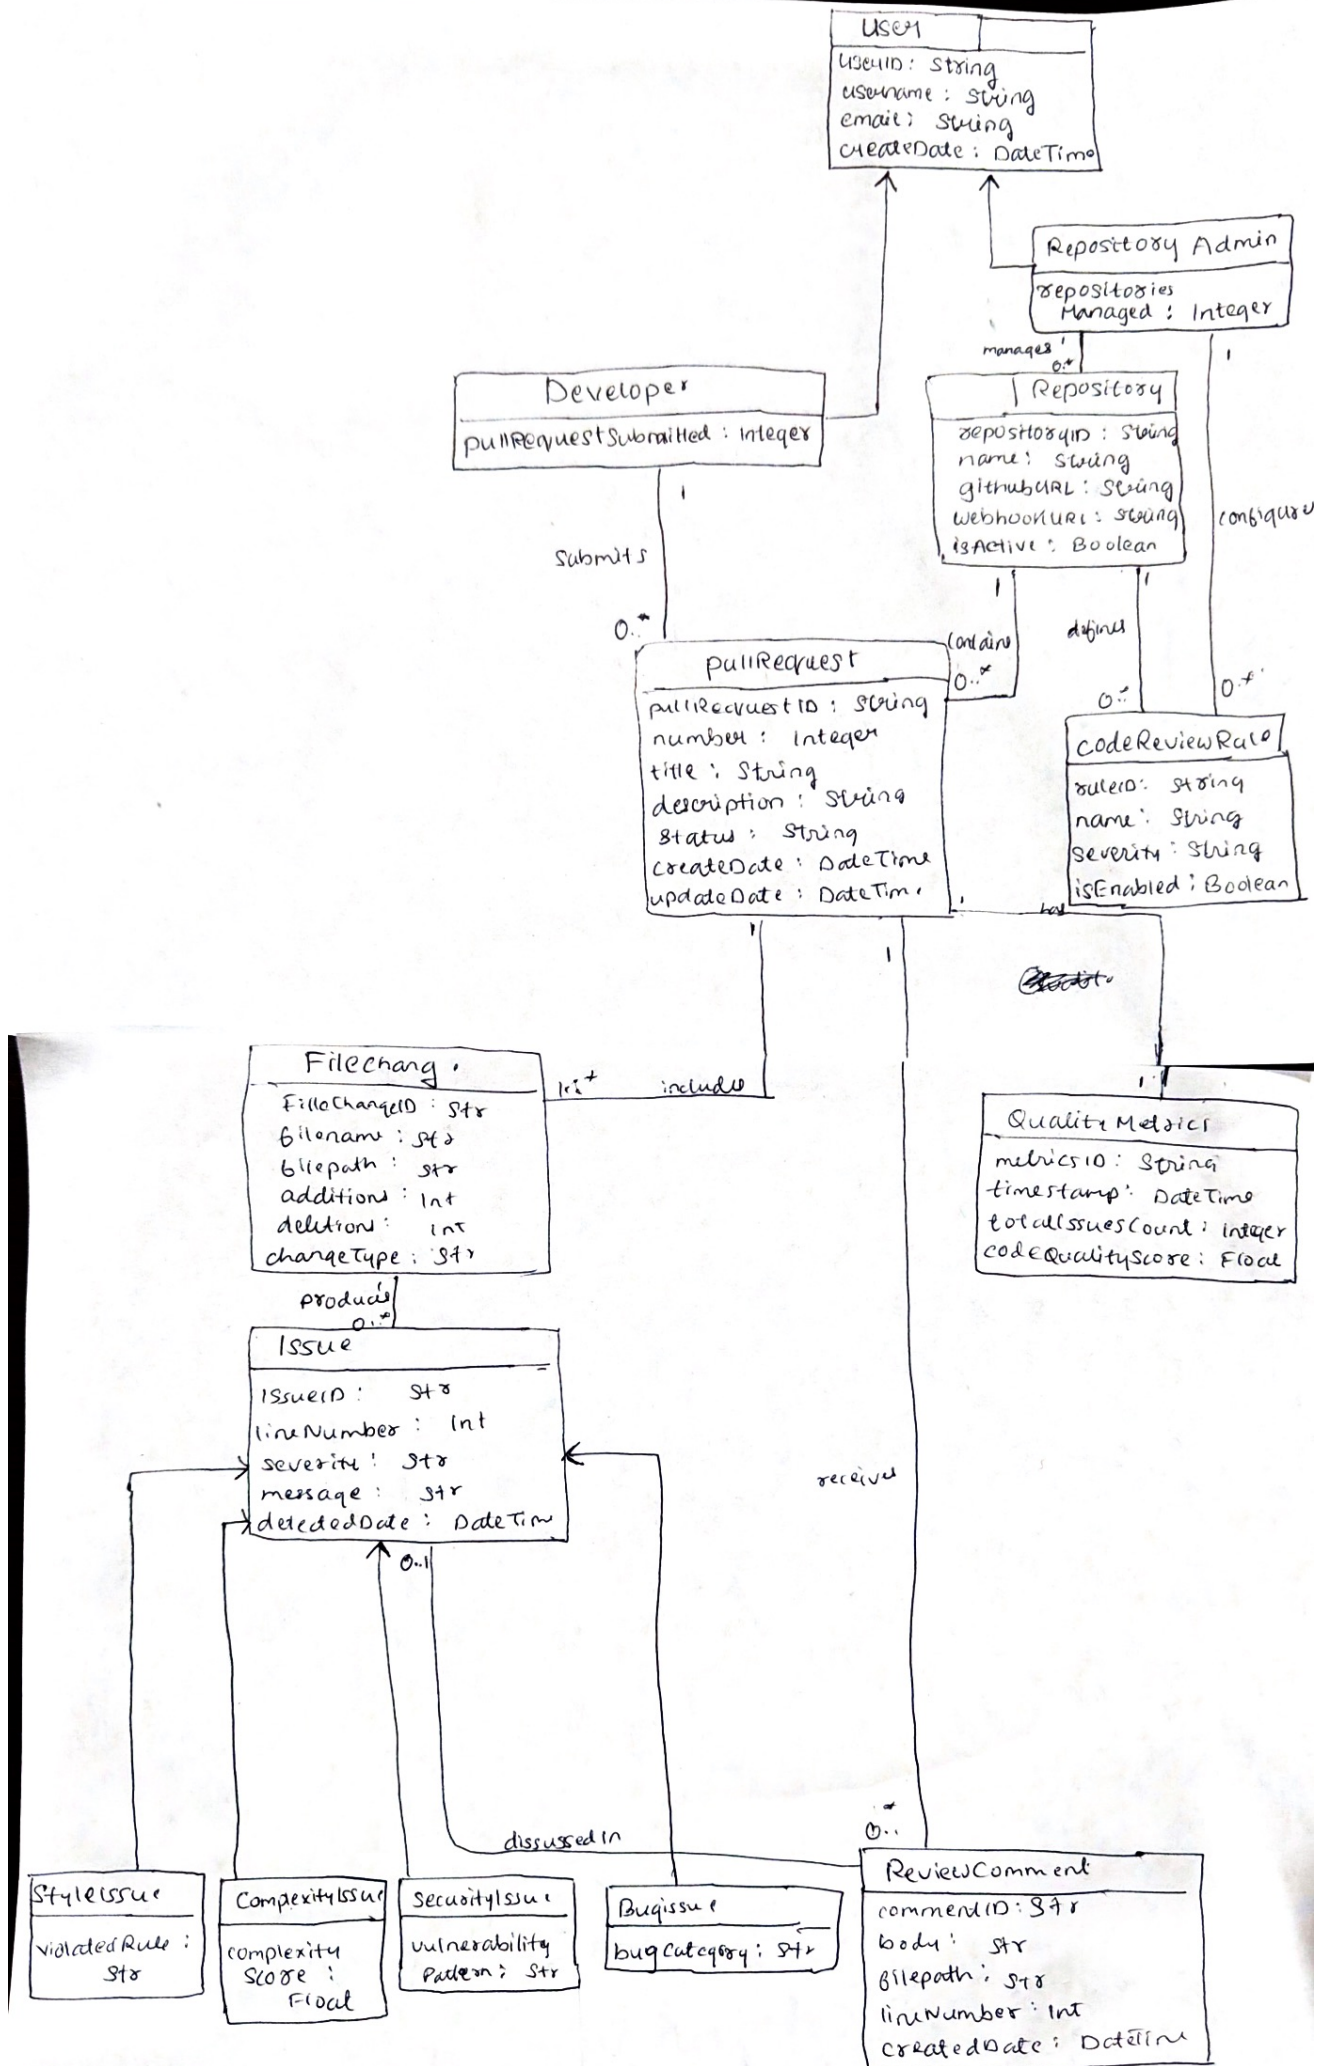 User
userID: String
username: String
email: String
createDate: DateTime
Repository Admin
repositories
Managed: Integer
manages 1
0..*
1
Developer
pullRequestSubmitted: Integer
Repository
repositoryID: String
name: String
githubURL: String
webhookURL: String
isActive: Boolean
configure
1
submits
0..*
1
contains
0..*
1
defines
0..*
0..*
pullRequest
pullRequestID: String
number: Integer
title: String
description: String
status: String
createDate: DateTime
updateDate: DateTim
codeReviewRule
ruleID: String
name: String
severity: String
isEnabled: Boolean
1
has
1
1
1
Filechang
FilleChangeID: Str
filename: Str
filepath: Str
additions: Int
deletions: Int
changeType: Str
includes
QualityMetrics
metricsID: String
timestamp: DateTime
totalIssuesCount: integer
codeQualityScore: Float
1
produces
0..*
Issue
ISSueID: Str
lineNumber: Int
severity: Str
message: Str
detectedDate: DateTim
0..1
receives
dissussedIn
0..*
StyleIssue
violatedRule:
Str
ComplexityIssue
complexity
Score:
Float
SecurityIssue
vulnerability
Pattern: Str
Bugissue
bugCategory: Str
ReviewComment
commentID: Str
body: Str
filepath: Str
lineNumber: Int
createdDate: DateTime